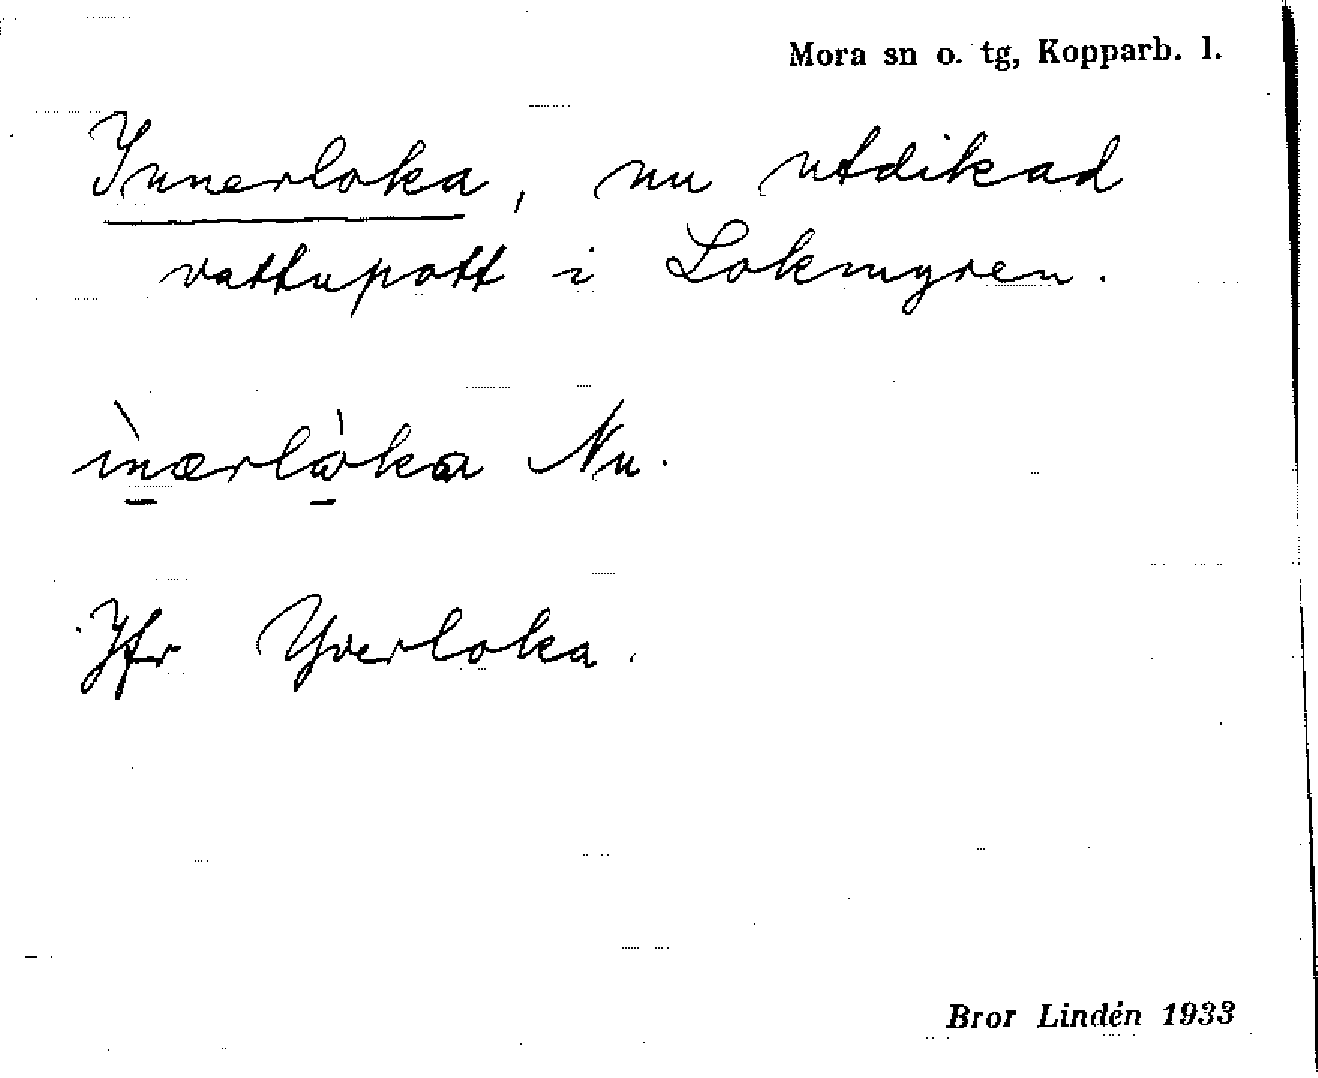 Mora sn o. tg, Kopparb. l.
Innerloka, nu utdikad
vattupott i Lokmyren.
ìnærlòka Nu.
Jfr Yverloka.
Bror Lindén 1933